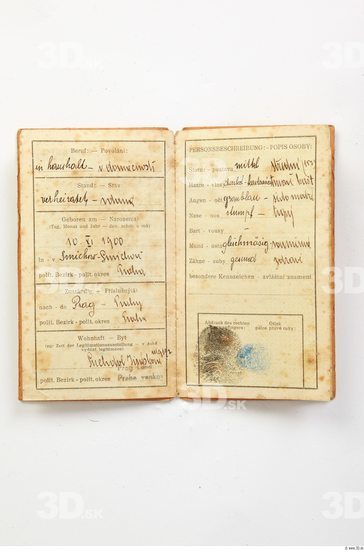 Beruf: — Povolání:
in haushalt — v domácnosti
Stand: — Stav:
verheiratet —
Geboren am — Narozen(a):
(Tag, Monat und Jahr — den, měsíc a rok)
10. XI 1900
in - v Smichov - Smíchov
polit. Bezirk - polit. okres Praha
Zuständig: — Příslušný(á):
nach - do Prag — Prahy
polit. Bezirk - polit. okres Praha
Wohnhaft — Byt
(zur Zeit der Legitimationsausstellung - v době vydání legitimace)
polit. Bezirk - polit. okres Praha venkov
PERSONSBESCHREIBUNG: - POPIS OSOBY:
Statur - postava mittel střední
Haare - vlasy
Augen - oči graublau - šedo modré
Nase - nos stumpf - tupý
Bart - vousy
Mund - ústa gleichmässig - souměrná
Zähne - zuby gesund zdravé
besondere Kennzeichen - zvláštní znamení
Abdruck des rechten
Otisk
palce pravé ruky:
3D.SK